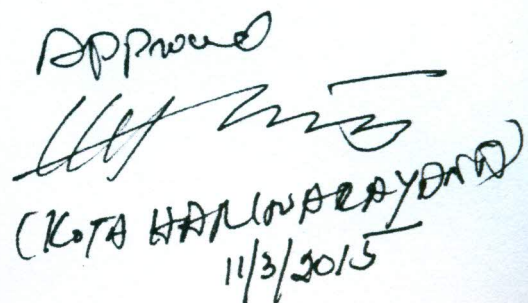 Approved
(KOTA HARINARAYANA)
11/3/2015